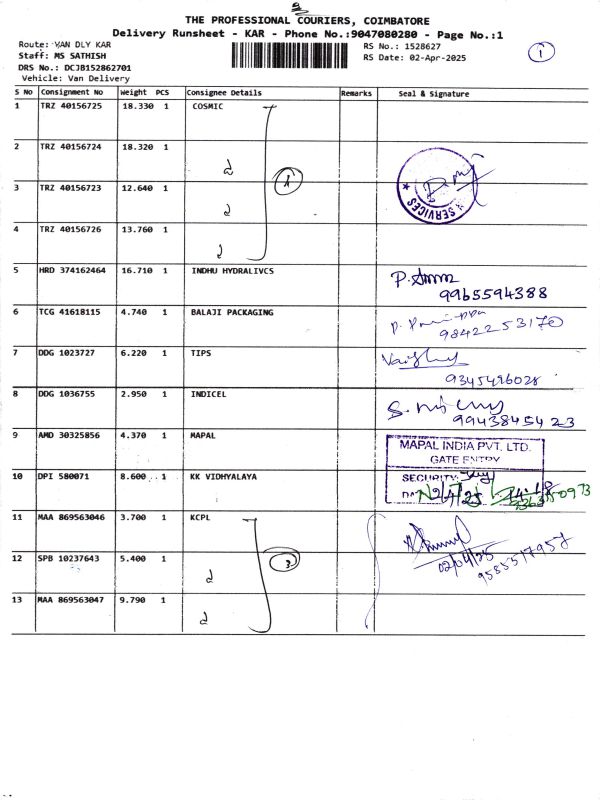 THE PROFESSIONAL COURIERS, COIMBATORE
Delivery Runsheet - KAR - Phone No.:9047080280 - Page No.:1
Route: VAN DLY KAR
Staff: MS SATHISH
DRS No.: DCJB152862701
Vehicle: Van Delivery
RS No.: 1528627
RS Date: 02-Apr-2025
1
S No Consignment No Weight PCS Consignee Details Remarks Seal & Signature
1 TRZ 40156725 18.330 1 COSMIC
2 TRZ 40156724 18.320 1
3 TRZ 40156723 12.640 1
4 TRZ 40156726 13.760 1
SERVICES
5 HRD 374162464 16.710 1 INDHU HYDRALIVCS
9965594388
6 TCG 41618115 4.740 1 BALAJI PACKAGING
9842253170
7 DDG 1023727 6.220 1 TIPS
9345496028
8 DDG 1036755 2.950 1 INDICEL
9943845423
9 AMD 30325856 4.370 1 MAPAL
MAPAL INDIA PVT. LTD.
GATE ENTRY
10 DPI 580071 8.600 1 KK VIDHYALAYA
SECURITY:
11 MAA 869563046 3.700 1 KCPL
12 SPB 10237643 5.400 1
3
02/04/25
9585517957
13 MAA 869563047 9.790 1